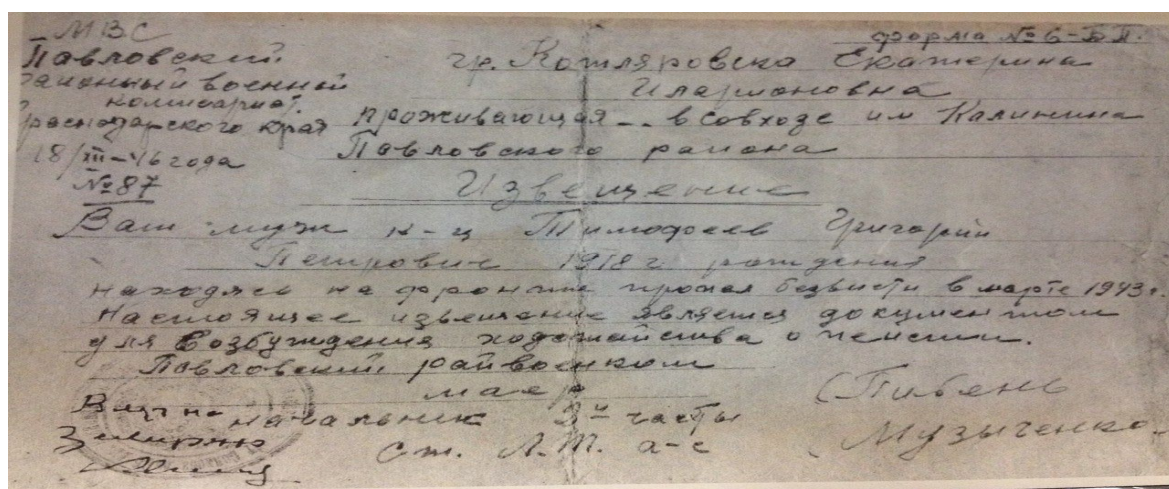 МВС
форма № 6-БП.
Павловский
районный военный
комиссариат
Краснодарского края
18/XII-46 года
№ 87
гр. Котляровска Екатерина
Иларионовна
проживающая -- в совхозе им Калинина
Павловского района
Извещение
Ваш муж к-ц Тимофеев Григорий
Петрович 1918 г рождения
находясь на фронте пропал безвисти в марте 1943 г.
Настоящее извещение является документом
для возбуждения ходотайства о пенсии.
Павловский райвоенком
маер (Пибень
начальник 3й части
Ст. Л.Т. а-с (Музыченко-